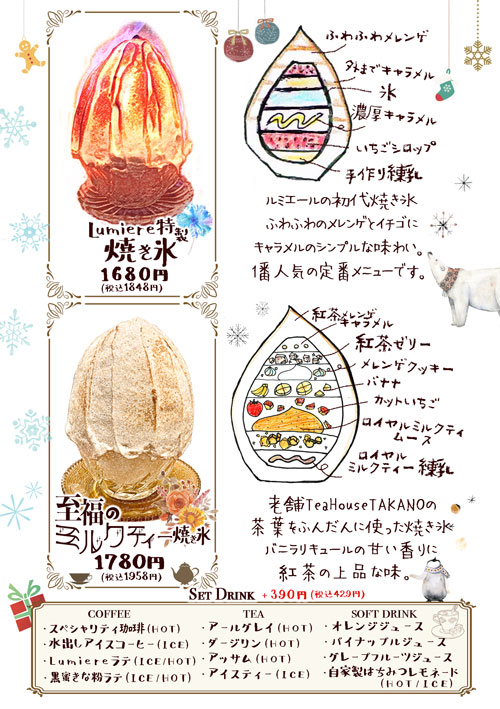 ふわふわメレンゲ
外までキャラメル
氷
濃厚キャラメル
いちごシロップ
手作り練乳
Lumiere特製
焼き氷
1680円
(税込1848円)
ルミエールの初代焼き氷
ふわふわのメレンゲとイチゴに
キャラメルのシンプルな味わい。
1番人気の定番メニューです。
紅茶メレンゲ
キャラメル
紅茶ゼリー
メレンゲクッキー
バナナ
カットいちご
ロイヤルミルクティ
ムース
ロイヤル
ミルクティー練乳
至福の
ミルクティー焼き氷
1780円
(税込1958円)
老舗TeaHouseTAKANOの
茶葉をふんだんに使った焼き氷
バニラリキュールの甘い香りに
紅茶の上品な味。
SET DRINK +390円(税込429円)
COFFEE
・スペシャリティ珈琲(HOT)
・水出しアイスコーヒー(ICE)
・Lumiereラテ(ICE/HOT)
・黒蜜きな粉ラテ(ICE/HOT)
TEA
・アールグレイ(HOT)
・ダージリン(HOT)
・アッサム(HOT)
・アイスティー(ICE)
SOFT DRINK
・オレンジジュース
・パイナップルジュース
・グレープフルーツジュース
・自家製はちみつレモネード
(HOT/ICE)